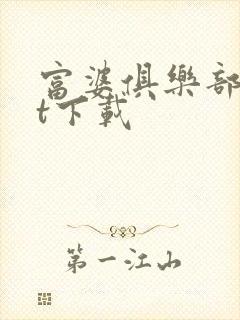 富婆俱樂部
t下載
第一江山